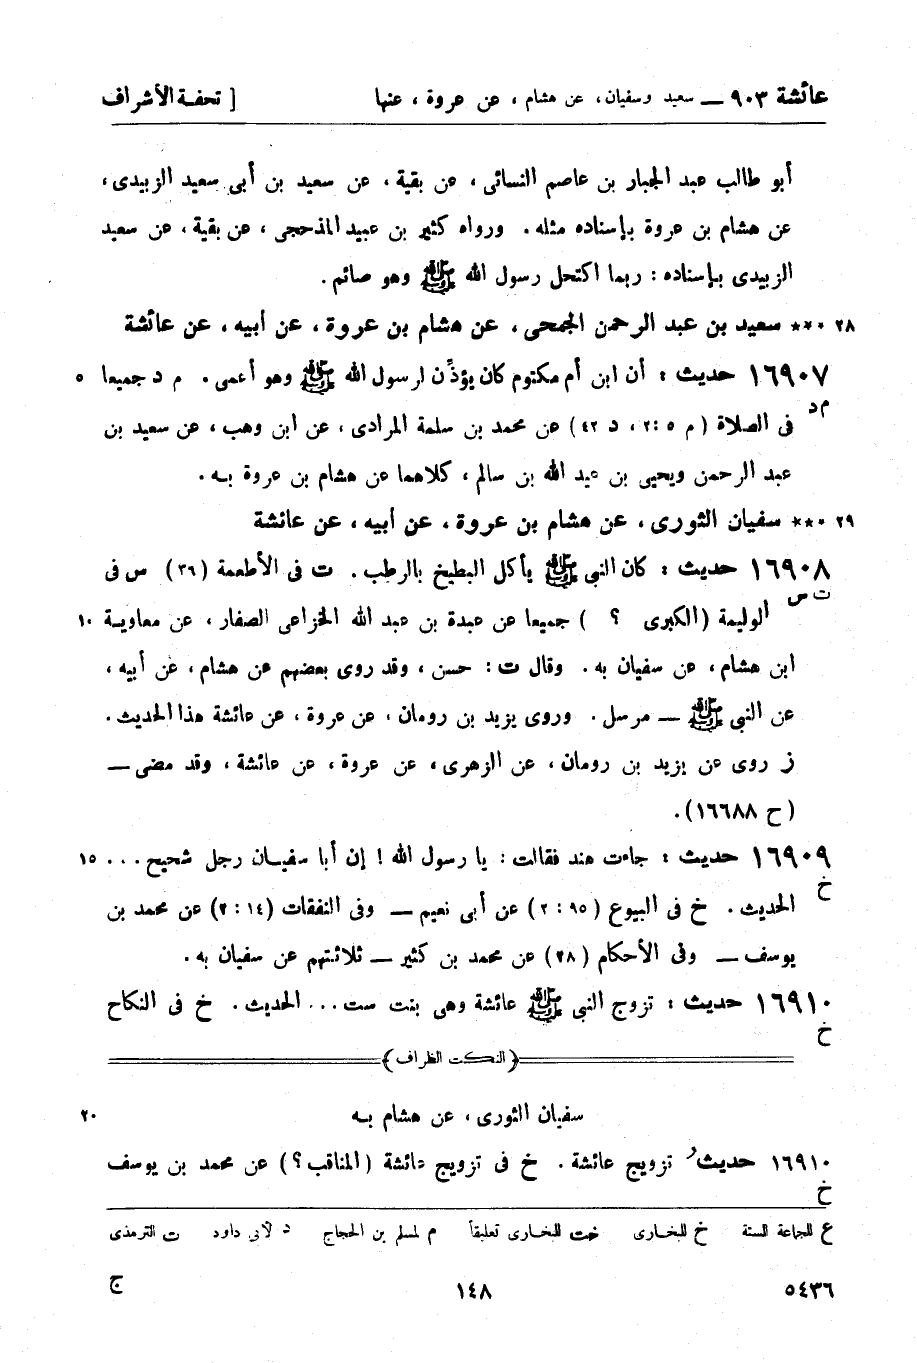 عائشة ٩٠٣ — سعيد وسفيان، عن هشام، عن عروة، عنها [ تحفة الأشراف
أبو طالب عبد الجبار بن عاصم النسائى، عن بقية، عن سعيد بن أبى سعيد الزبيدى،
عن هشام بن عروة بإسناده مثله. ورواه كثير بن عبيد المذحجى، عن بقية، عن سعيد
الزبيدى بإسناده: ربما اكتحل رسول الله ﷺ وهو صائم.
٢٨ ۰** سعيد بن عبد الرحمن الجمحى، عن هشام بن عروة، عن أبيه، عن عائشة
١٦٩٠٧ حديث: أن ابن أم مكتوم كان يؤذّن لرسول الله ﷺ وهو أعمى. م د جميعا ٥
م د
فى الصلاة (م ٥: ٢، د ٤٢) عن محمد بن سلمة المرادى، عن ابن وهب، عن سعيد بن
عبد الرحمن ويحيى بن عبد الله بن سالم، كلاهما عن هشام بن عروة به.
٢٩ ۰** سفيان الثورى، عن هشام بن عروة، عن أبيه، عن عائشة
١٦٩٠٨ حديث: كان النبى ﷺ يأكل البطيخ بالرطب. ت فى الأطعمة (٣٦) س فى
ت س
الوليمة (الكبرى ؟ ) جميعا عن عبدة بن عبد الله الخزاعى الصفار، عن معاوية ١٠
ابن هشام، عن سفيان به. وقال ت: حسن، وقد روى بعضهم عن هشام، عن أبيه،
عن النبى ﷺ — مرسل. وروى يزيد بن رومان، عن عروة، عن عائشة هذا الحديث.
ز روى عن يزيد بن رومان، عن الزهرى، عن عروة، عن عائشة، وقد مضى —
(ح ١٦٦٨٨).
١٦٩٠٩ حديث: جاءت هند فقالت: يا رسول الله! إن أبا سفيان رجل شحيح... ١٥
خ
الحديث. خ فى البيوع (٩٥: ٢) عن أبى نعيم — وفى النفقات (١٤: ٢) عن محمد بن
يوسف — وفى الأحكام (٢٨) عن محمد بن كثير — ثلاثتهم عن سفيان به.
١٦٩١٠ حديث: تزوج النبى ﷺ عائشة وهى بنت ست... الحديث. خ فى النكاح
خ
﴿النكت الظراف﴾
سفيان الثورى، عن هشام به ٢٠
١٦٩١٠ حديث تزويج عائشة. خ فى تزويج عائشة (المناقب؟) عن محمد بن يوسف
خ
ع للجماعة الستة خ للبخارى خت للبخارى تعليقاً م لمسلم بن الحجاج د لأبى داود ت الترمذى
٥٤٣٦ ١٤٨ ج